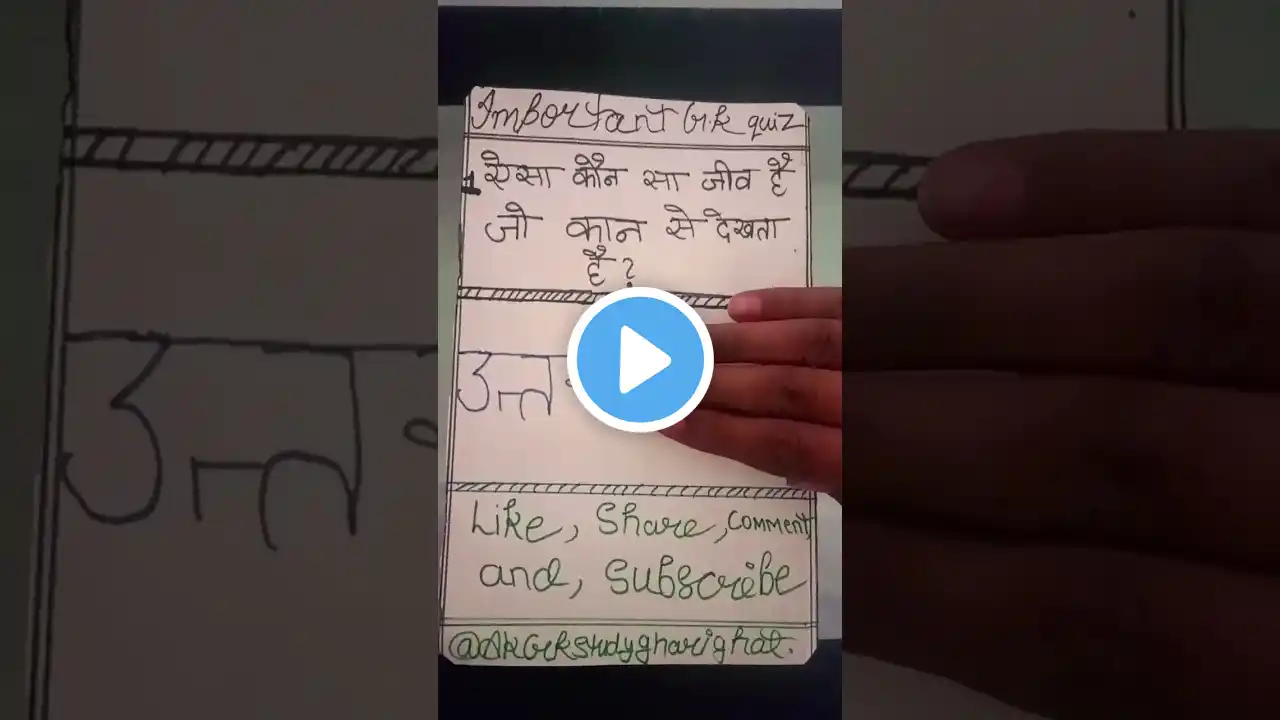 Important G.K quiz
1 ऐसा कौन सा जीव है
जो कान से देखता
है?
उत्त
Like, Share, Comment
and, Subscribe
@AkGkstudygharighat.